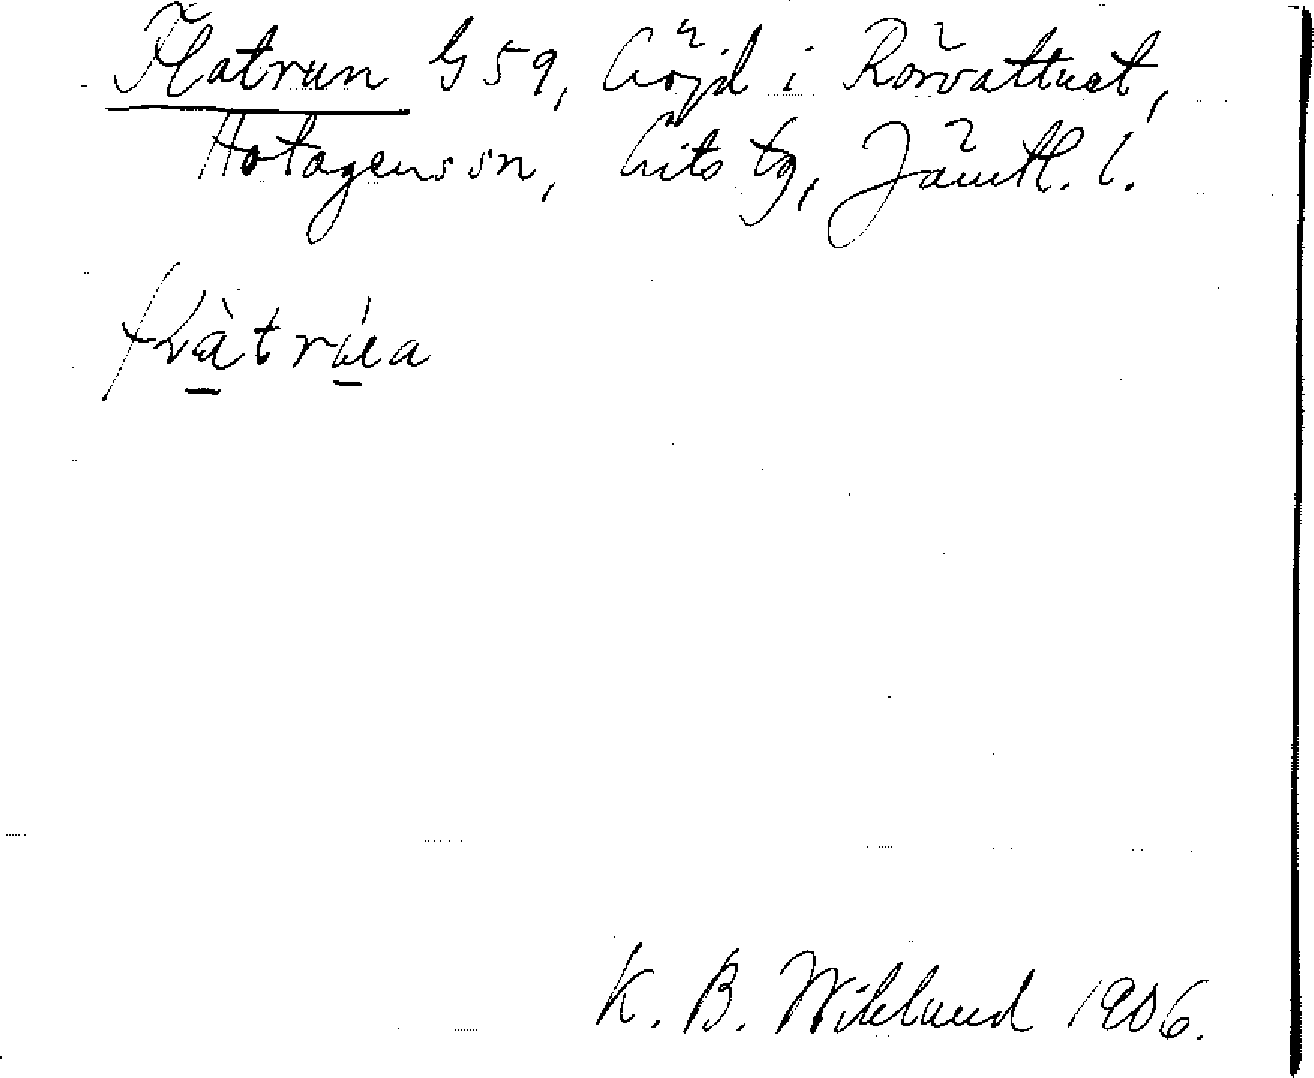 Flatrun G 59, höjd i Rörvattnet,
Hotagens sn, Lits tg, Jämtl. l.
K. B. Wiklund 1906.